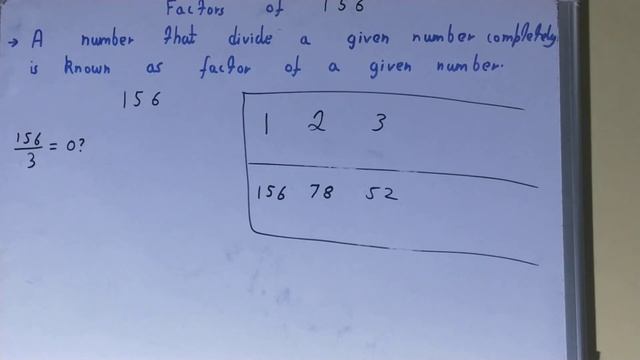 Factors of 156
→ A number that divide a given number completely
is known as factor of a given number.
156
156/3 = 0?
1 2 3
156 78 52